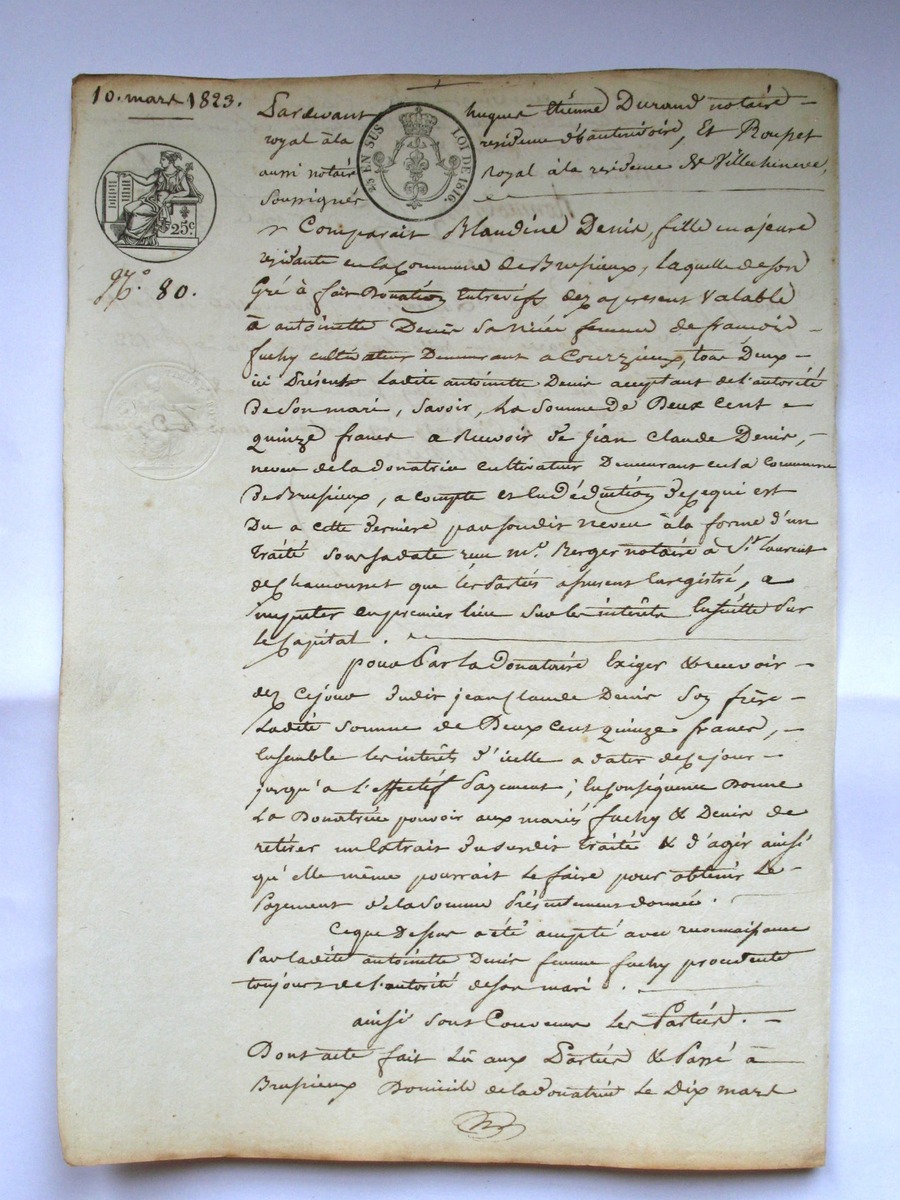 10. mars 1823.
Pardevant hugues Etienne Durand notaire
royal à la residence d'hauterivoire, Et Roupet
aussi notaire Royal à la residence de Villecheneve,
Soussignés
EN SUS
LOI DE 1816.
25 c
N.º 80.
Comparait Blandine Denis, fille majeure
residante en la Commune de Brusieux, laquelle de son
Gré à fait Donation Entrevifs dez apresent Valable
à antoinette Denis sa Niéce femme de francois
fuchy cultivateur Demeurant a Courzieux, tous Deux
ici Présents ladite antoinette Denis acceptant de l'autorité
De Son mari, Savoir, La Somme De Deux Cent
quinze francs a Recevoir de Jean Claude Denis,
neveu de la donatrice cultivateur Demeurant en la Commune
De Brusieux, a compte et En Déduction De ce qui est
Du a cette derniere par sondit neveu à la forme d'un
traité sous sa date reçu m.e Berger notaire à S.t Laurent
de Chamousset que les Parties assurent Enregistré, a
imputer en premier lieu sur les intérêts Ensuitte sur
le Capital.
pour Par la Donataire Exiger & recevoir
dez ce jour dudit jean Claude Denis son frère
Ladite Somme de Deux Cent quinze francs,
Ensemble les intérêts d'icelle a dater de ce jour
jusqu'a l'effectif Payement; En Conséquence Donne
La Donatrice pouvoir aux mariés fuchy & Denis de
retirer un Extrait du susdit traité & d'agir ainsi
qu'elle même pourrait le faire pour obtenir le
Payement de la Somme Présentement donnée.
Ce que Dessus a été accepté avec reconnaissance
Par ladite antoinette Denis femme fuchy procédente
toujours de l'autorité de son mari.
ainsi sont Convenus Les Parties.
Dont acte fait Lû aux Parties & Passé à
Brusieux Domicile de la donatrice Le Dix mars